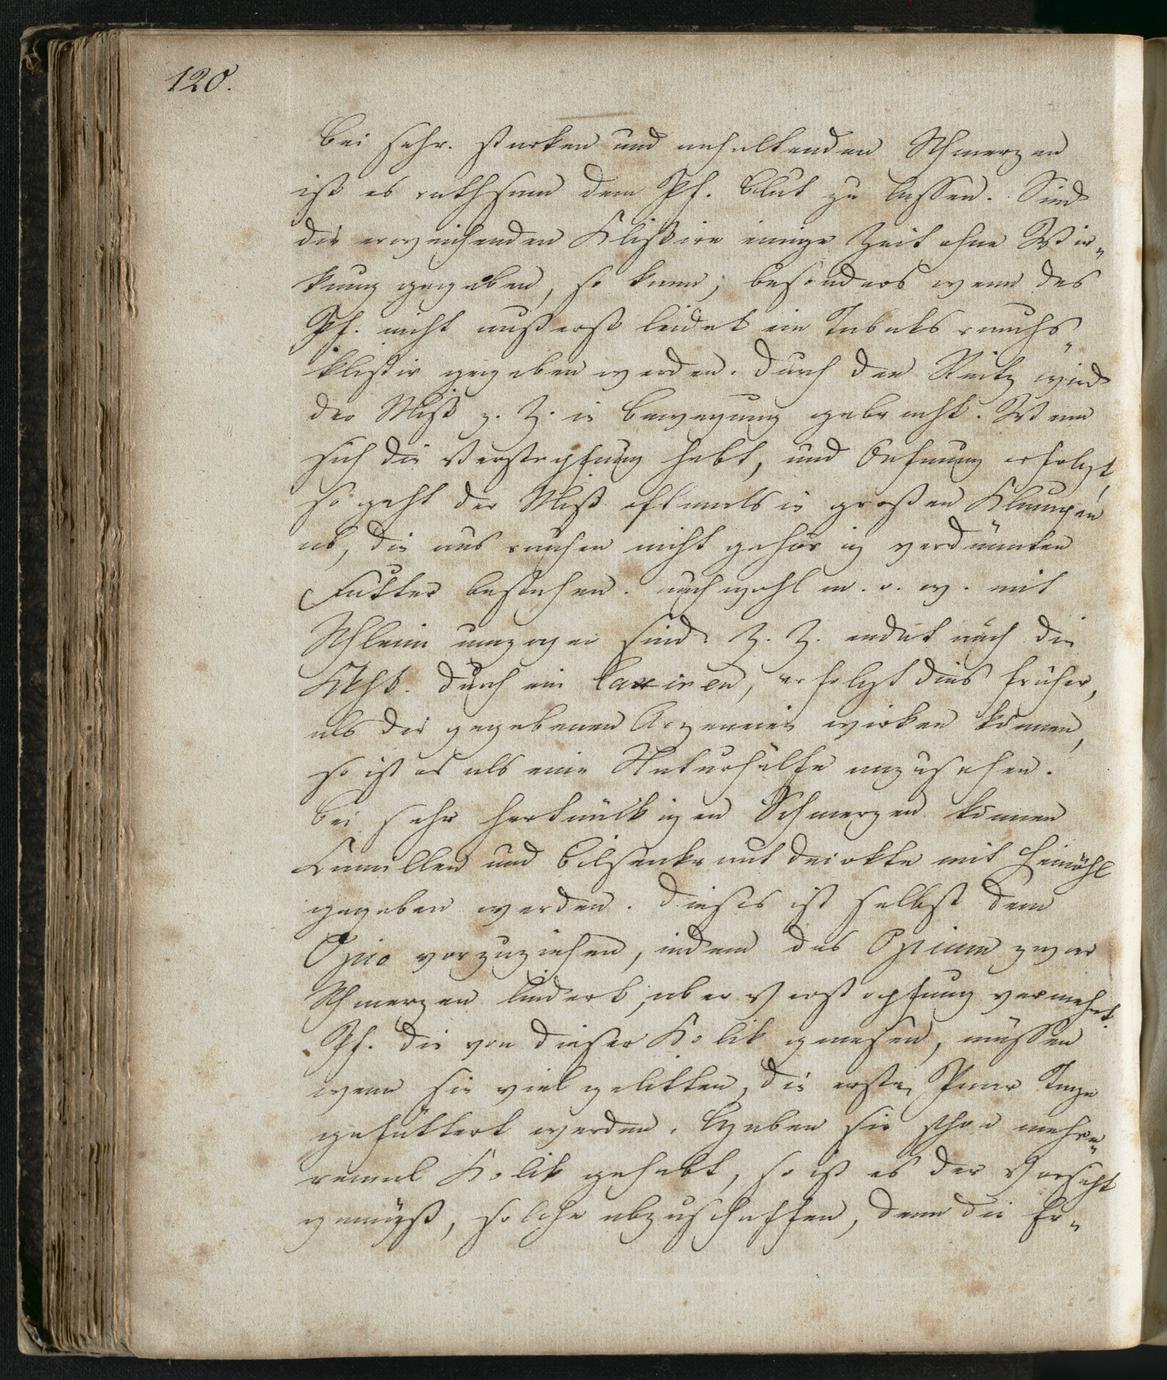 120.
Bei sehr. starken und anhaltenden Schmerzen
ist es rathsam dem Pf. Blut zu lassen. Sind
die erweichenden Klistire einige Zeit ohne Wir„
kung gegeben, so kann, besonders wenn das
Pf. nicht aüßerst leidet ein Tabaksrauchs„
klistir gegeben werden. Durch den Reitz wird
der Mist z. Z. in Bewegung gebracht. Wenn
sich die Verstopfung hebt, und Oefnung erfolgt,
so geht der Mist oftmals in großen Klumpen
ab, die aus rauhen nicht gehörig verdäunten
Futter bestehen. auch wohl m. o. w. mit
Schleim umzogen sind. Z. Z. endet auch die
Krkht. durch ein Laxiren, erfolgt dies früher,
als die gegebenen Arzeneien wirken können,
so ist es als eine Naturhülfe anzusehen.
Bei sehr hartnäckigen Schmerzen können
Camillen und Bilsenkraut decokte mit Leinöhl
gegeben werden. Dieses ist selbst dem
Opio vorzuziehen, indem das Opium zwar
Schmerzen lindert, aber Verstopfung vermehrt.
Pf. die von dieser Kolik genesen, müssen
wenn sie viel gelitten, die erste Paar Tage
gefüttert werden. Haben sie schon mehre„
remal Kolik gehabt, so ist es der Vorsicht
gemäß, solche abzuschaffen, denn die Er„